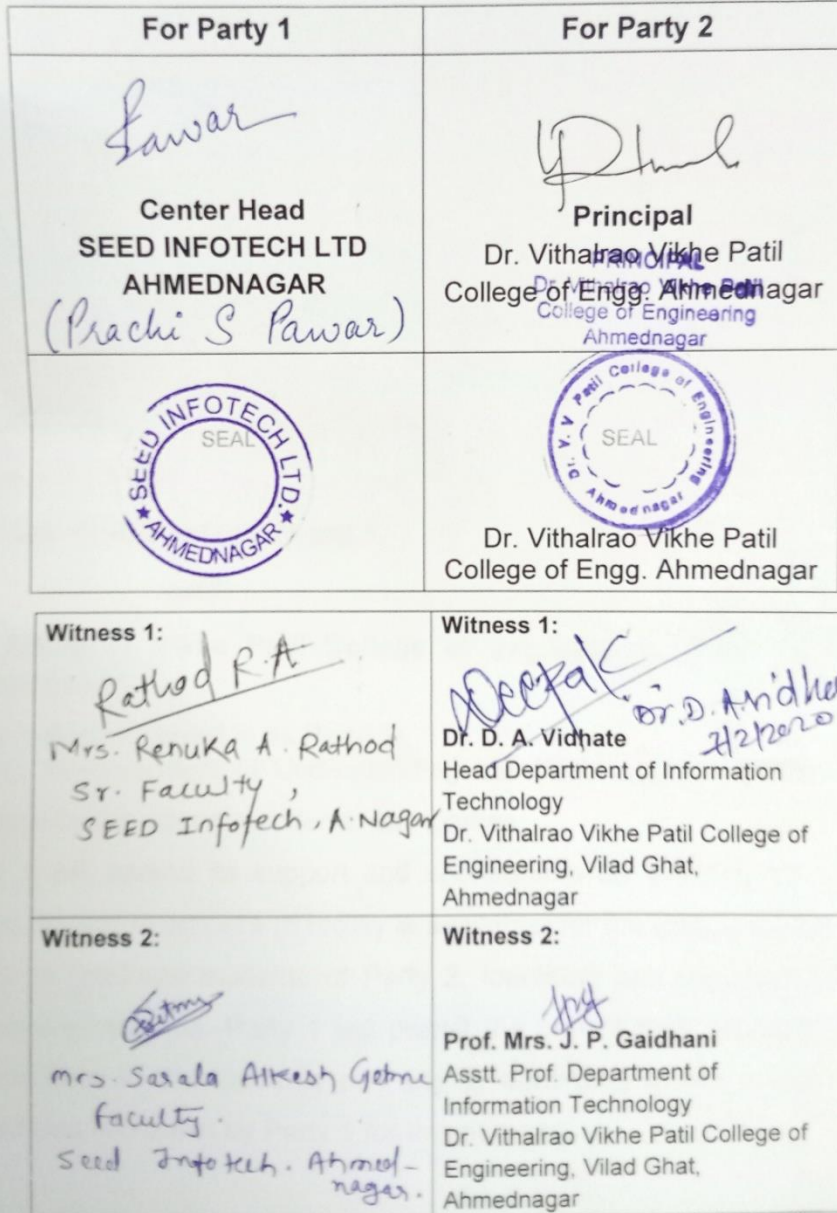 For Party 1
For Party 2
Pawar
Center Head
SEED INFOTECH LTD
AHMEDNAGAR
(Prachi S Pawar)
Principal
Dr. Vithalrao Vikhe Patil
College of Engg. Ahmednagar
PRINCIPAL
Dr. Vithalrao Vikhe Patil
College of Engineering
Ahmednagar
SEED INFOTECH LTD.
SEAL
★ AHMEDNAGAR ★
Dr. V. V. Patil College of Engineering
SEAL
Ahmednagar
Dr. Vithalrao Vikhe Patil
College of Engg. Ahmednagar
Witness 1:
Rathod R.A
Mrs. Renuka A. Rathod
Sr. Faculty,
SEED Infotech, A.Nagar
Witness 1:
Deepak
Dr. D. A. Vidhate
7/2/2020
Dr. D. A. Vidhate
Head Department of Information
Technology
Dr. Vithalrao Vikhe Patil College of
Engineering, Vilad Ghat,
Ahmednagar
Witness 2:
mrs. Sarala Alkesh
Faculty.
Seed Infotech. Ahmed-
nagar.
Witness 2:
Prof. Mrs. J. P. Gaidhani
Asstt. Prof. Department of
Information Technology
Dr. Vithalrao Vikhe Patil College of
Engineering, Vilad Ghat,
Ahmednagar